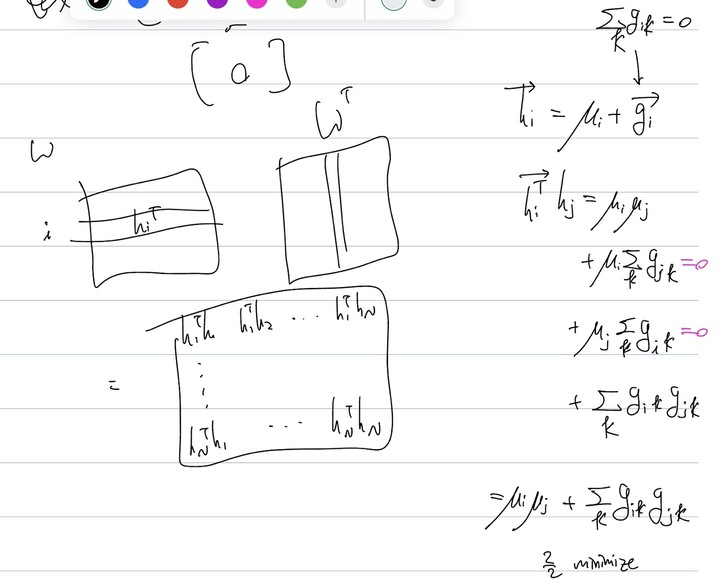 [ 0 ]
W
Wᵀ
i
hᵢᵀ
=
h₁ᵀh₁ h₁ᵀh₂ ... h₁ᵀh_N
⋮
h_Nᵀh₁ ... h_Nᵀh_N
∑_k g_ik = 0
↓
h⃗ᵢ = μᵢ + g⃗ᵢ
h⃗ᵢᵀ hⱼ = μᵢμⱼ
+ μᵢ ∑_k g_jk = 0
+ μⱼ ∑_k g_ik = 0
+ ∑_k g_ik g_jk
= μᵢμⱼ + ∑_k g_ik g_jk
minimize